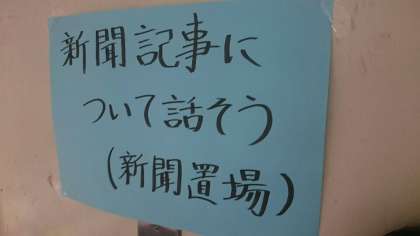 新聞記事に
ついて話そう
(新聞置場)